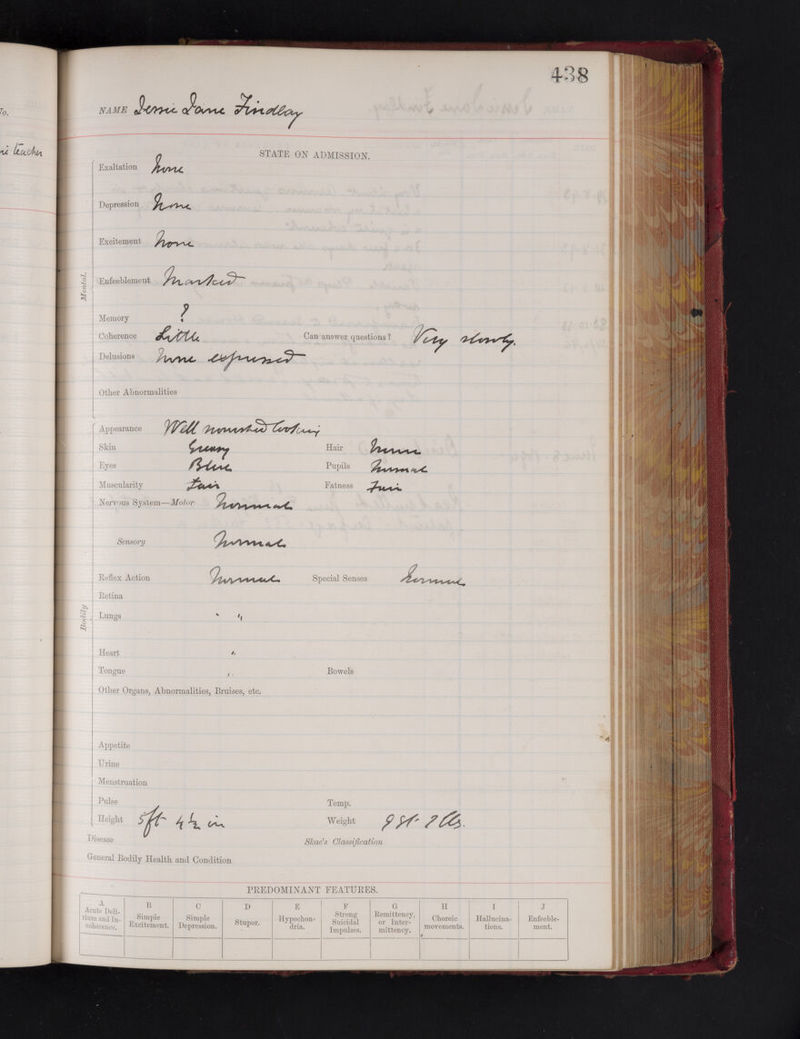 To.
438
NAME Jessie Jane Findlay
teacher
STATE ON ADMISSION.
Exaltation None
Depression None
Excitement None
Mental.
Enfeeblement Marked
Memory ?
Coherence Little Can answer questions? Very slowly.
Delusions None expressed
Other Abnormalities
Appearance Well nourished looking
Skin Greasy Hair
Eyes Blue Pupils Normal
Muscularity Fair Fatness Fair
Nervous System—Motor Normal
Sensory Normal
Reflex Action Normal Special Senses Normal
Retina
Bodily
Lungs " "
Heart "
Tongue " Bowels
Other Organs, Abnormalities, Bruises, etc.
Appetite
Urine
Menstruation
Pulse Temp.
Height 5ft 4½ in Weight 9 st. 2 lbs.
Disease Skae's Classification
General Bodily Health and Condition
PREDOMINANT FEATURES.
A B C D E F G H I J
Acute Delirium and Incoherence. Simple Excitement. Simple Depression. Stupor. Hypochondria. Strong Suicidal Impulses. Remittency, or Intermittency. Choreic movements. Hallucinations. Enfeeblement.